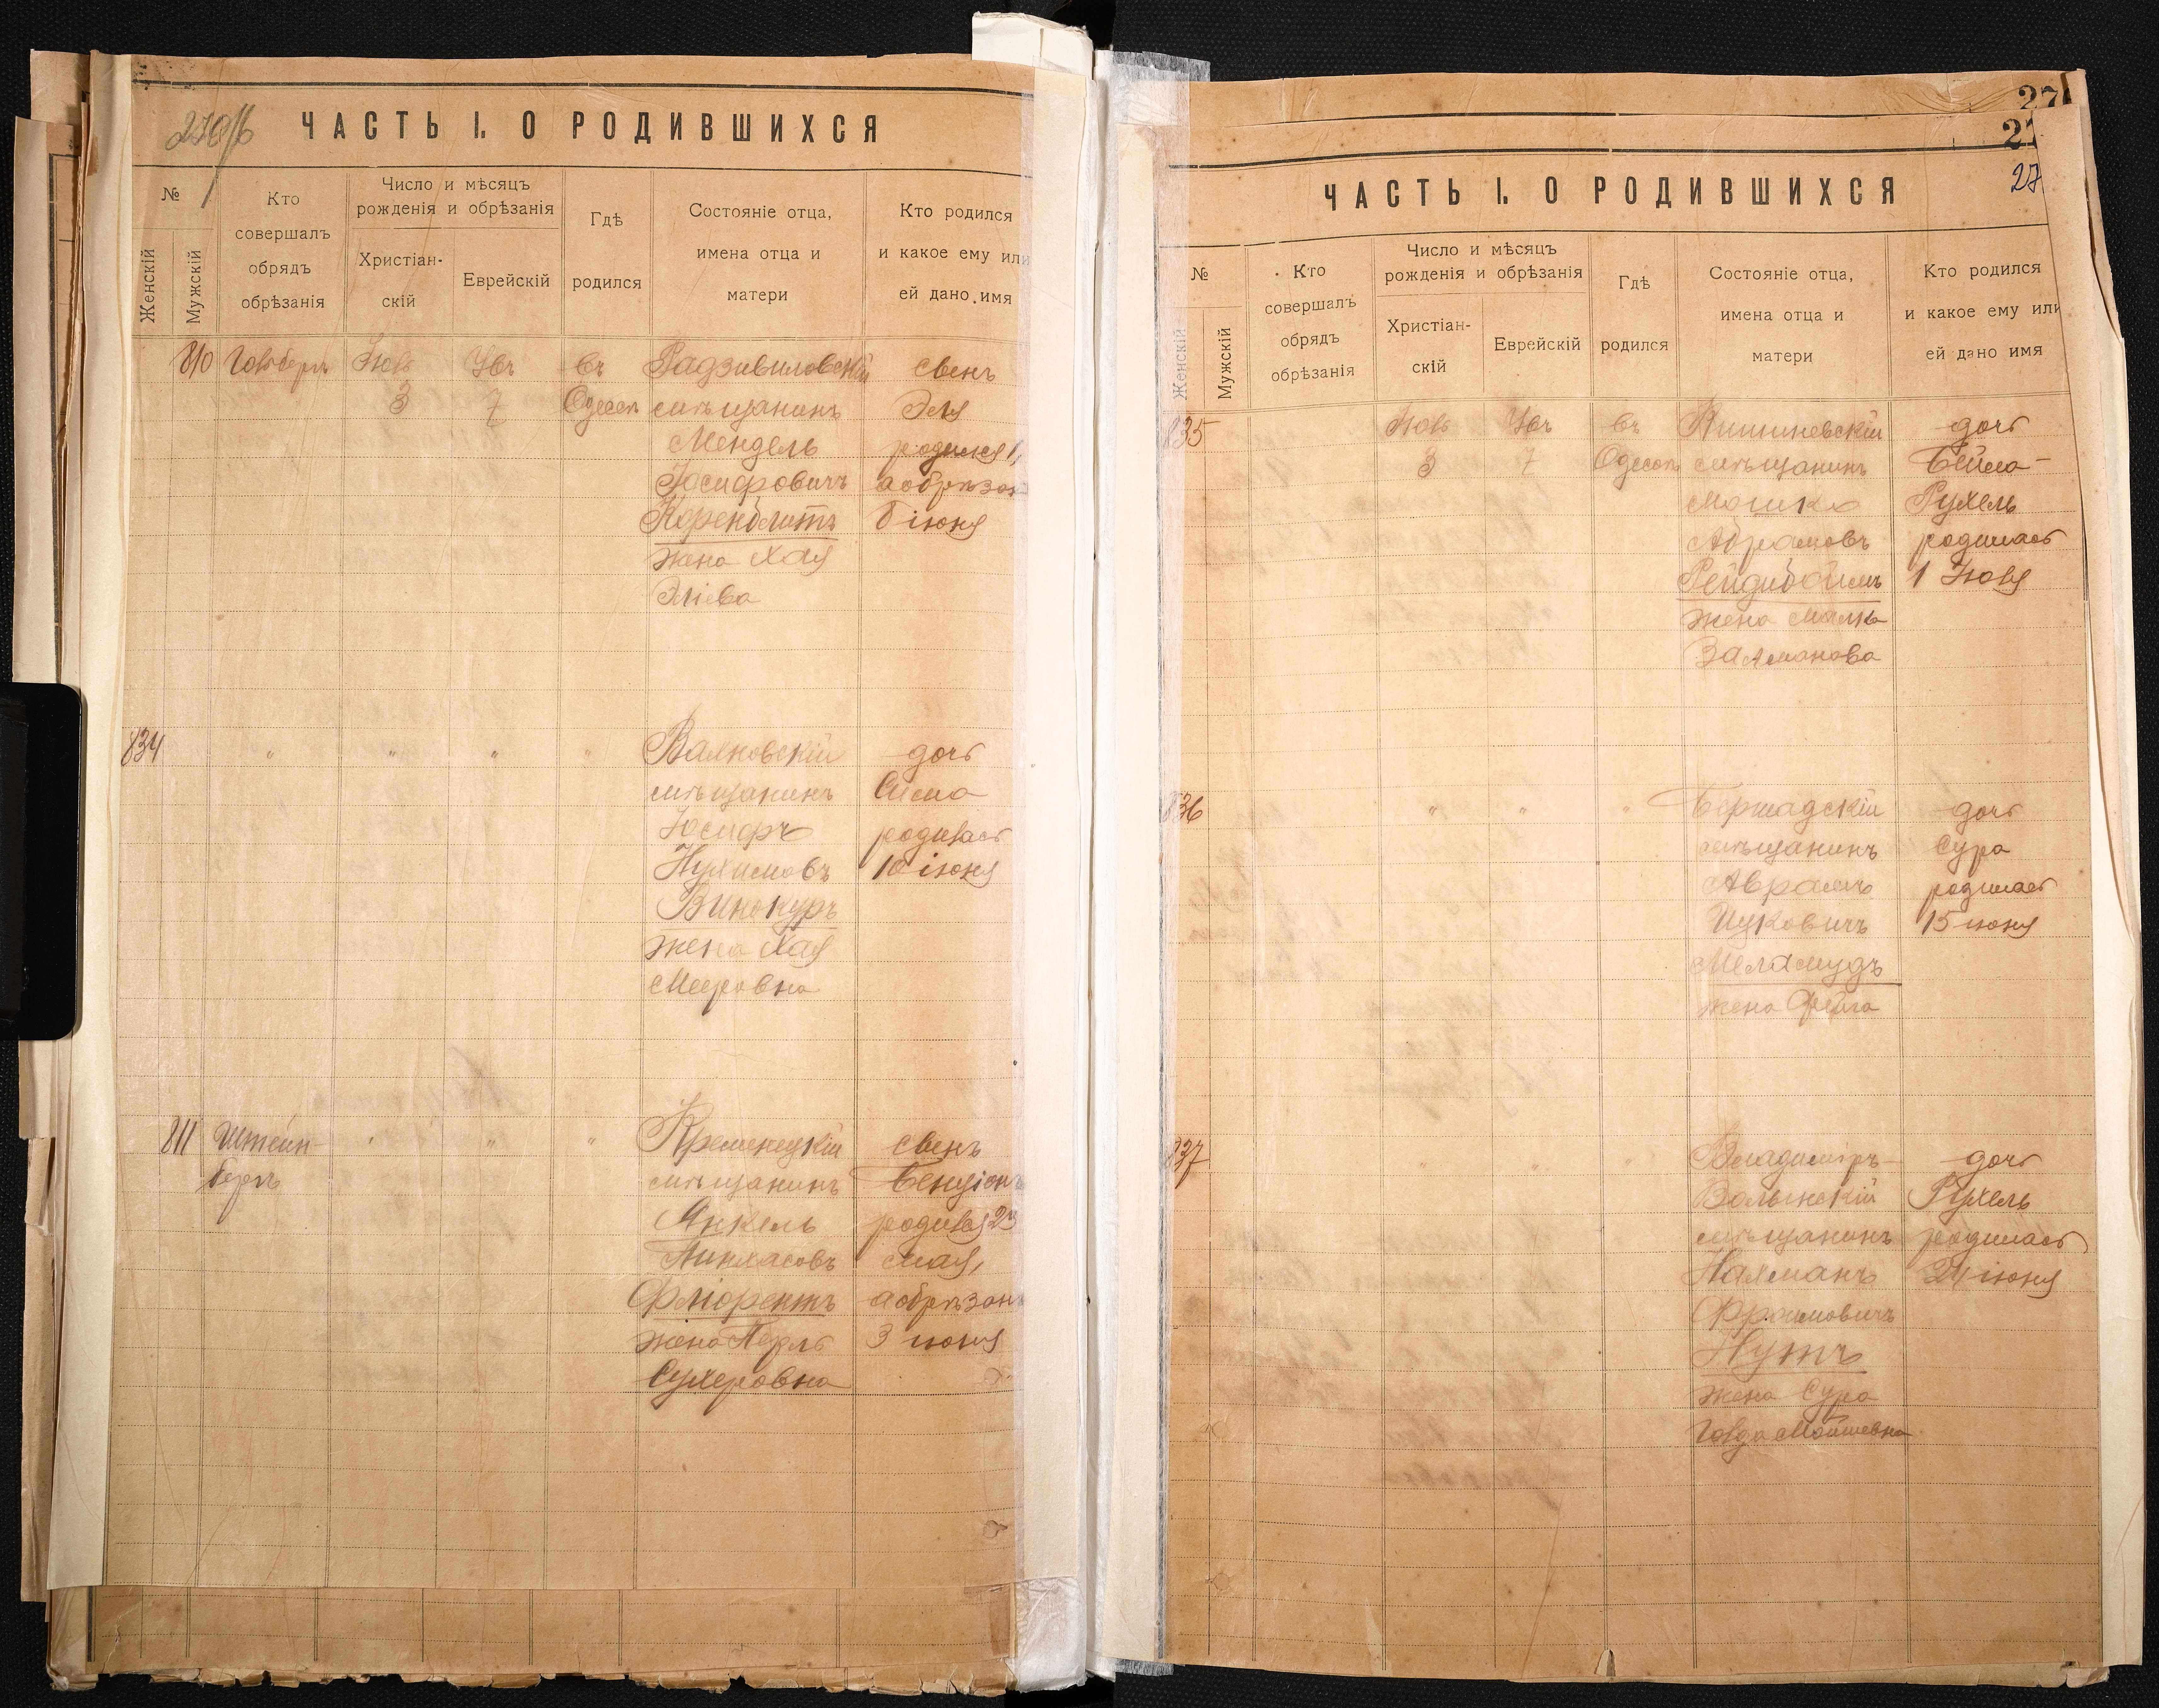 ЧАСТЬ I. О РОДИВШИХСЯ
№
Женскій
Мужскій
Кто
совершалъ
обрядъ
обрѣзанія
Число и мѣсяцъ
рожденія и обрѣзанія
Христіан-
скій
Еврейскій
Гдѣ
родился
Состояніе отца,
имена отца и
матери
Кто родился
и какое ему или
ей дано имя
810
3
7
въ
Радзивиловскій
мѣщанинъ
Мендель
Іосифовичъ
Коренблитъ
жена Хая
Эліева
Эля
родился 1,
а обрѣзан
іюня
834
"
"
"
"
мѣщанинъ
Іосифъ
Нухимовъ
Винокуръ
жена Хая
Мееровна
дочь
Сима
родилась
10 іюня
811
Штейн-
бергъ
"
"
"
Кременецкій
мѣщанинъ
Янкель
Пинхасовъ
жена Перль
Сухеровна
Бенціонъ
родился 23
мая,
а обрѣзанъ
3 іюня
27
ЧАСТЬ I. О РОДИВШИХСЯ
№
Женскій
Мужскій
Кто
совершалъ
обрядъ
обрѣзанія
Число и мѣсяцъ
рожденія и обрѣзанія
Христіан-
скій
Еврейскій
Гдѣ
родился
Состояніе отца,
имена отца и
матери
Кто родился
и какое ему или
ей дано имя
835
3
7
въ
Кишиневскій
мѣщанинъ
Мошко
Абрамовъ
жена Малка
Залманова
дочь
Бейла-
Рухель
родилась
1 Іюля
836
"
"
"
Бершадскій
мѣщанинъ
Авраамъ
Ицковичъ
Меламудъ
жена Фейга
дочь
Сура
родилась
15 іюня
837
"
"
"
Владиміръ-
Волынскій
мѣщанинъ
Нахманъ
Фроимовичъ
Нутъ
жена Сура
Голда Мойшевна
дочь
Рухель
родилась
24 іюня